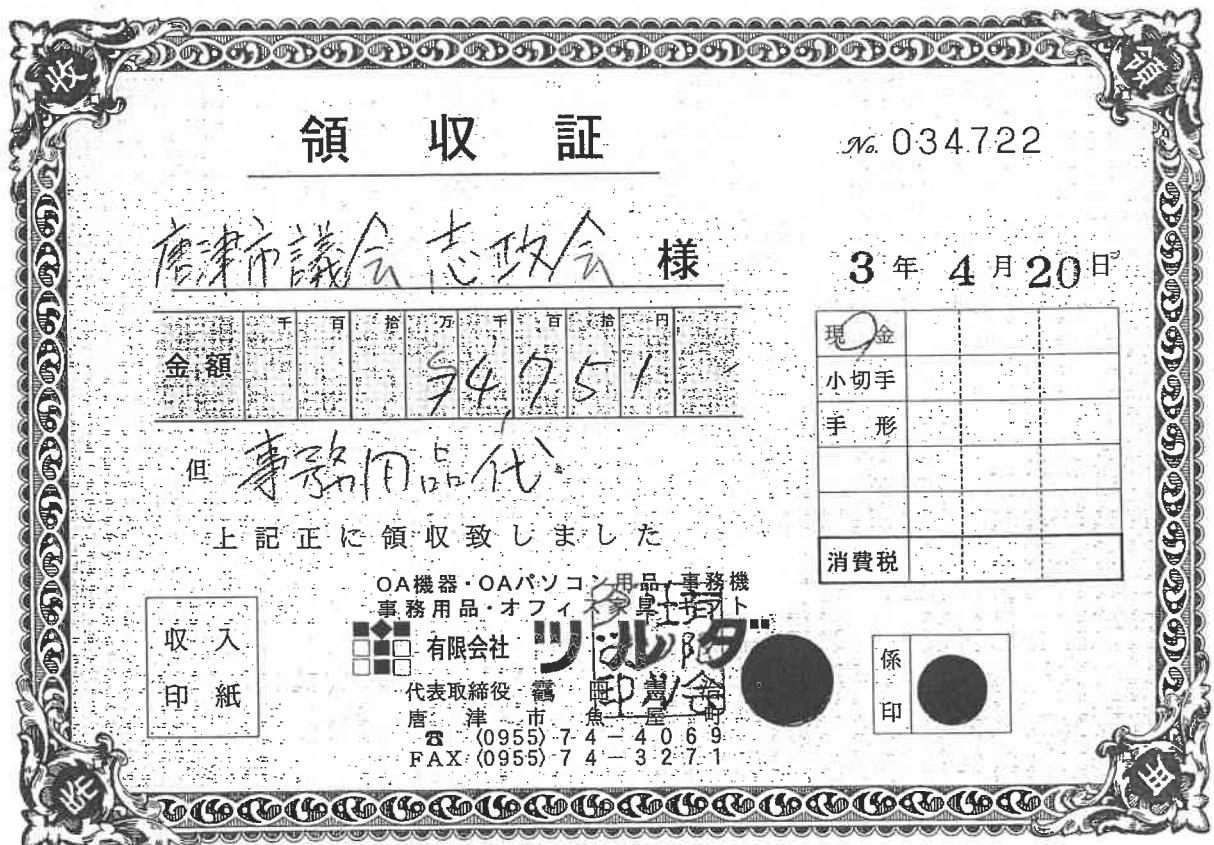 領収証
No. 034722
唐津市議会 志政会 様
3年 4月 20日
千 百 拾 万 千 百 拾 円
金額 ¥4751
但 事務用品代
上記正に領収致しました
現金
小切手
手形
消費税
OA機器・OAパソコン用品・事務機
事務用品・オフィス家具・ギフト
有限会社 ツルダ
代表取締役
唐津市魚屋町
☎ (0955) 74-4069
FAX (0955) 74-3271
収入
印紙
係
印